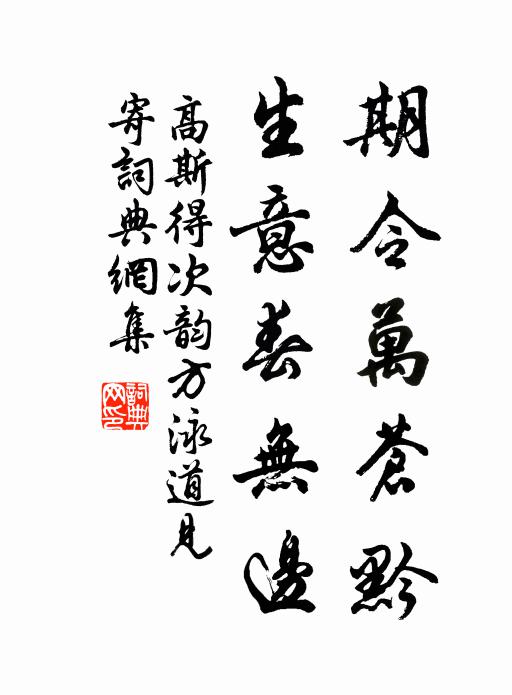 期令萬蒼黔
生意春無邊
高斯得次韵方泳道見
寄詞典網集
詞典網印